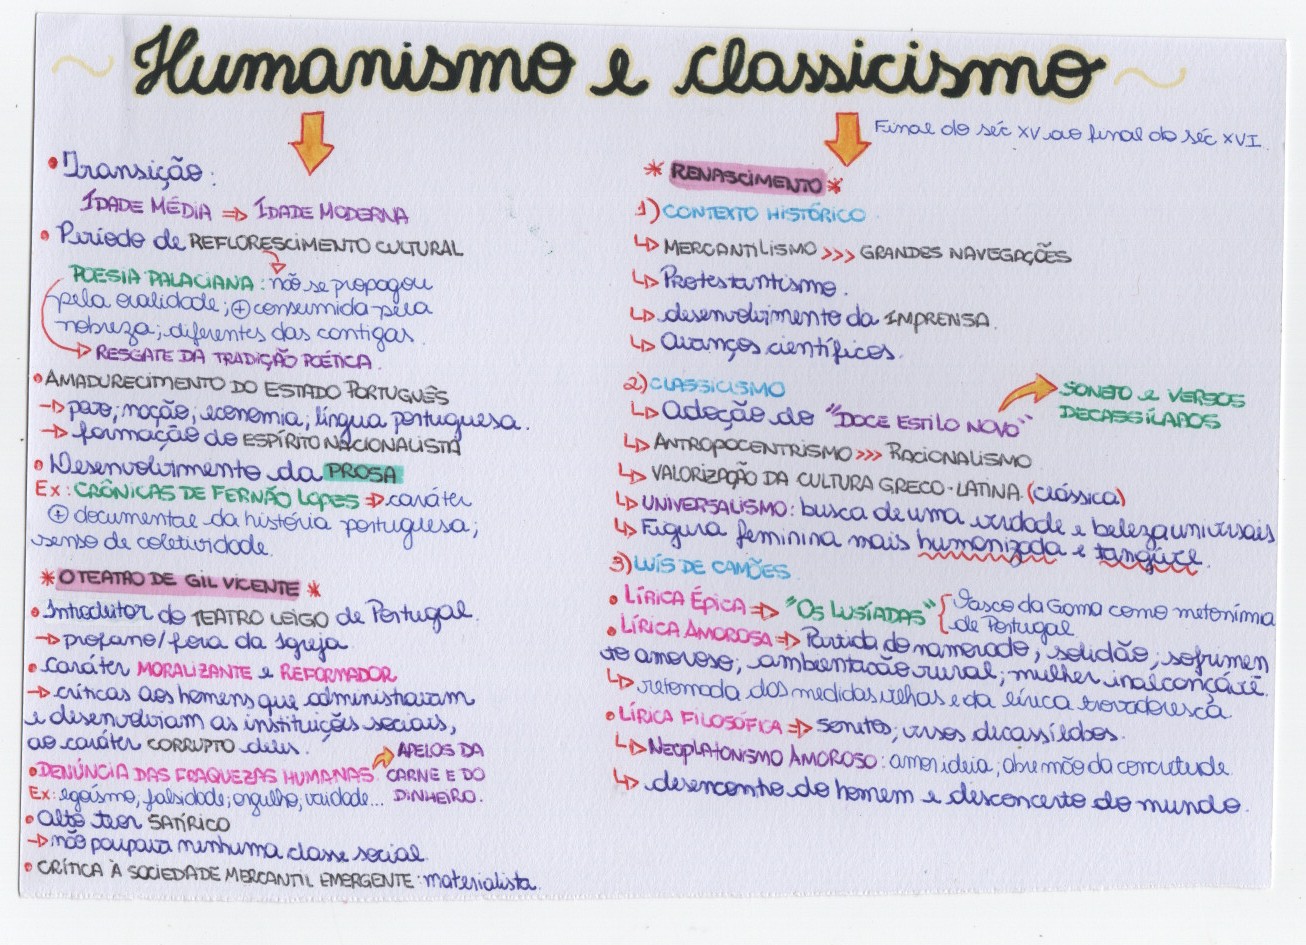 ~ Humanismo e classicismo ~
• Transição:
IDADE MÉDIA => IDADE MODERNA
• Período de REFLORESCIMENTO CULTURAL
POESIA PALACIANA: não se propagou
pela oralidade; ⊕ consumida pela
nobreza; diferentes das cantigas.
→ RESGATE DA TRADIÇÃO POÉTICA.
• AMADURECIMENTO DO ESTADO PORTUGUÊS
→ povo; noção; economia; língua portuguesa.
→ formação do ESPÍRITO NACIONALISTA
• Desenvolvimento da PROSA
Ex: CRÔNICAS DE FERNÃO LOPES => caráter
⊕ documental da história portuguesa;
senso de coletividade.
* O TEATRO DE GIL VICENTE *
• Introdutor do TEATRO LEIGO de Portugal.
→ profano/fora da Igreja.
• caráter MORALIZANTE e REFORMADOR
→ críticas aos homens que administravam
e desenvolviam as instituições sociais,
ao caráter CORRUPTO deles.
• DENÚNCIA DAS FRAQUEZAS HUMANAS. → APELOS DA
CARNE E DO
DINHEIRO.
Ex: egoísmo, falsidade, orgulho, vaidade...
• alto teor SATÍRICO
→ não poupava nenhuma classe social.
• CRÍTICA À SOCIEDADE MERCANTIL EMERGENTE: materialista.
Final do séc XV ao final do séc XVI.
* RENASCIMENTO *
1) CONTEXTO HISTÓRICO
↳ MERCANTILISMO >>> GRANDES NAVEGAÇÕES
↳ Protestantismo.
↳ desenvolvimento da IMPRENSA.
↳ avanços científicos.
2) CLASSICISMO
↳ adoção do "DOCE ESTILO NOVO" → SONETO e VERSOS
DECASSÍLABOS
↳ ANTROPOCENTRISMO >>> RACIONALISMO
↳ VALORIZAÇÃO DA CULTURA GRECO-LATINA (clássica)
↳ UNIVERSALISMO: busca de uma verdade e beleza universais
↳ Figura feminina mais humanizada e tangível.
3) LUÍS DE CAMÕES
• LÍRICA ÉPICA => "OS LUSÍADAS" { Vasco da Gama como metonímia
de Portugal
• LÍRICA AMOROSA => Partida do namorado; solidão; sofrimen
to amoroso; ambientação rural; mulher inalcançável.
↳ retomada das medidas velhas e da lírica trovadoresca.
• LÍRICA FILOSÓFICA => sonetos; versos decassílabos.
↳ NEOPLATONISMO AMOROSO: amor ideia; abre mão da concretude.
↳ desencontro do homem e desconcerto do mundo.